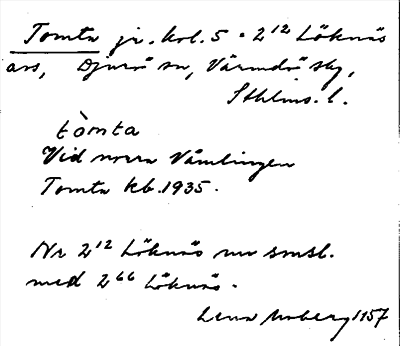 Tomta jr. kol. 5 = 2¹² Löknäs
ars, Djurö sn, Värmdö skg,
Sthlms. l.
tòmta
Vid norra Vämlingen
Tomta kb. 1935.
Nr 2¹² Löknäs nu smsl.
med 2⁶⁶ Löknäs.
Lena Moberg 1157